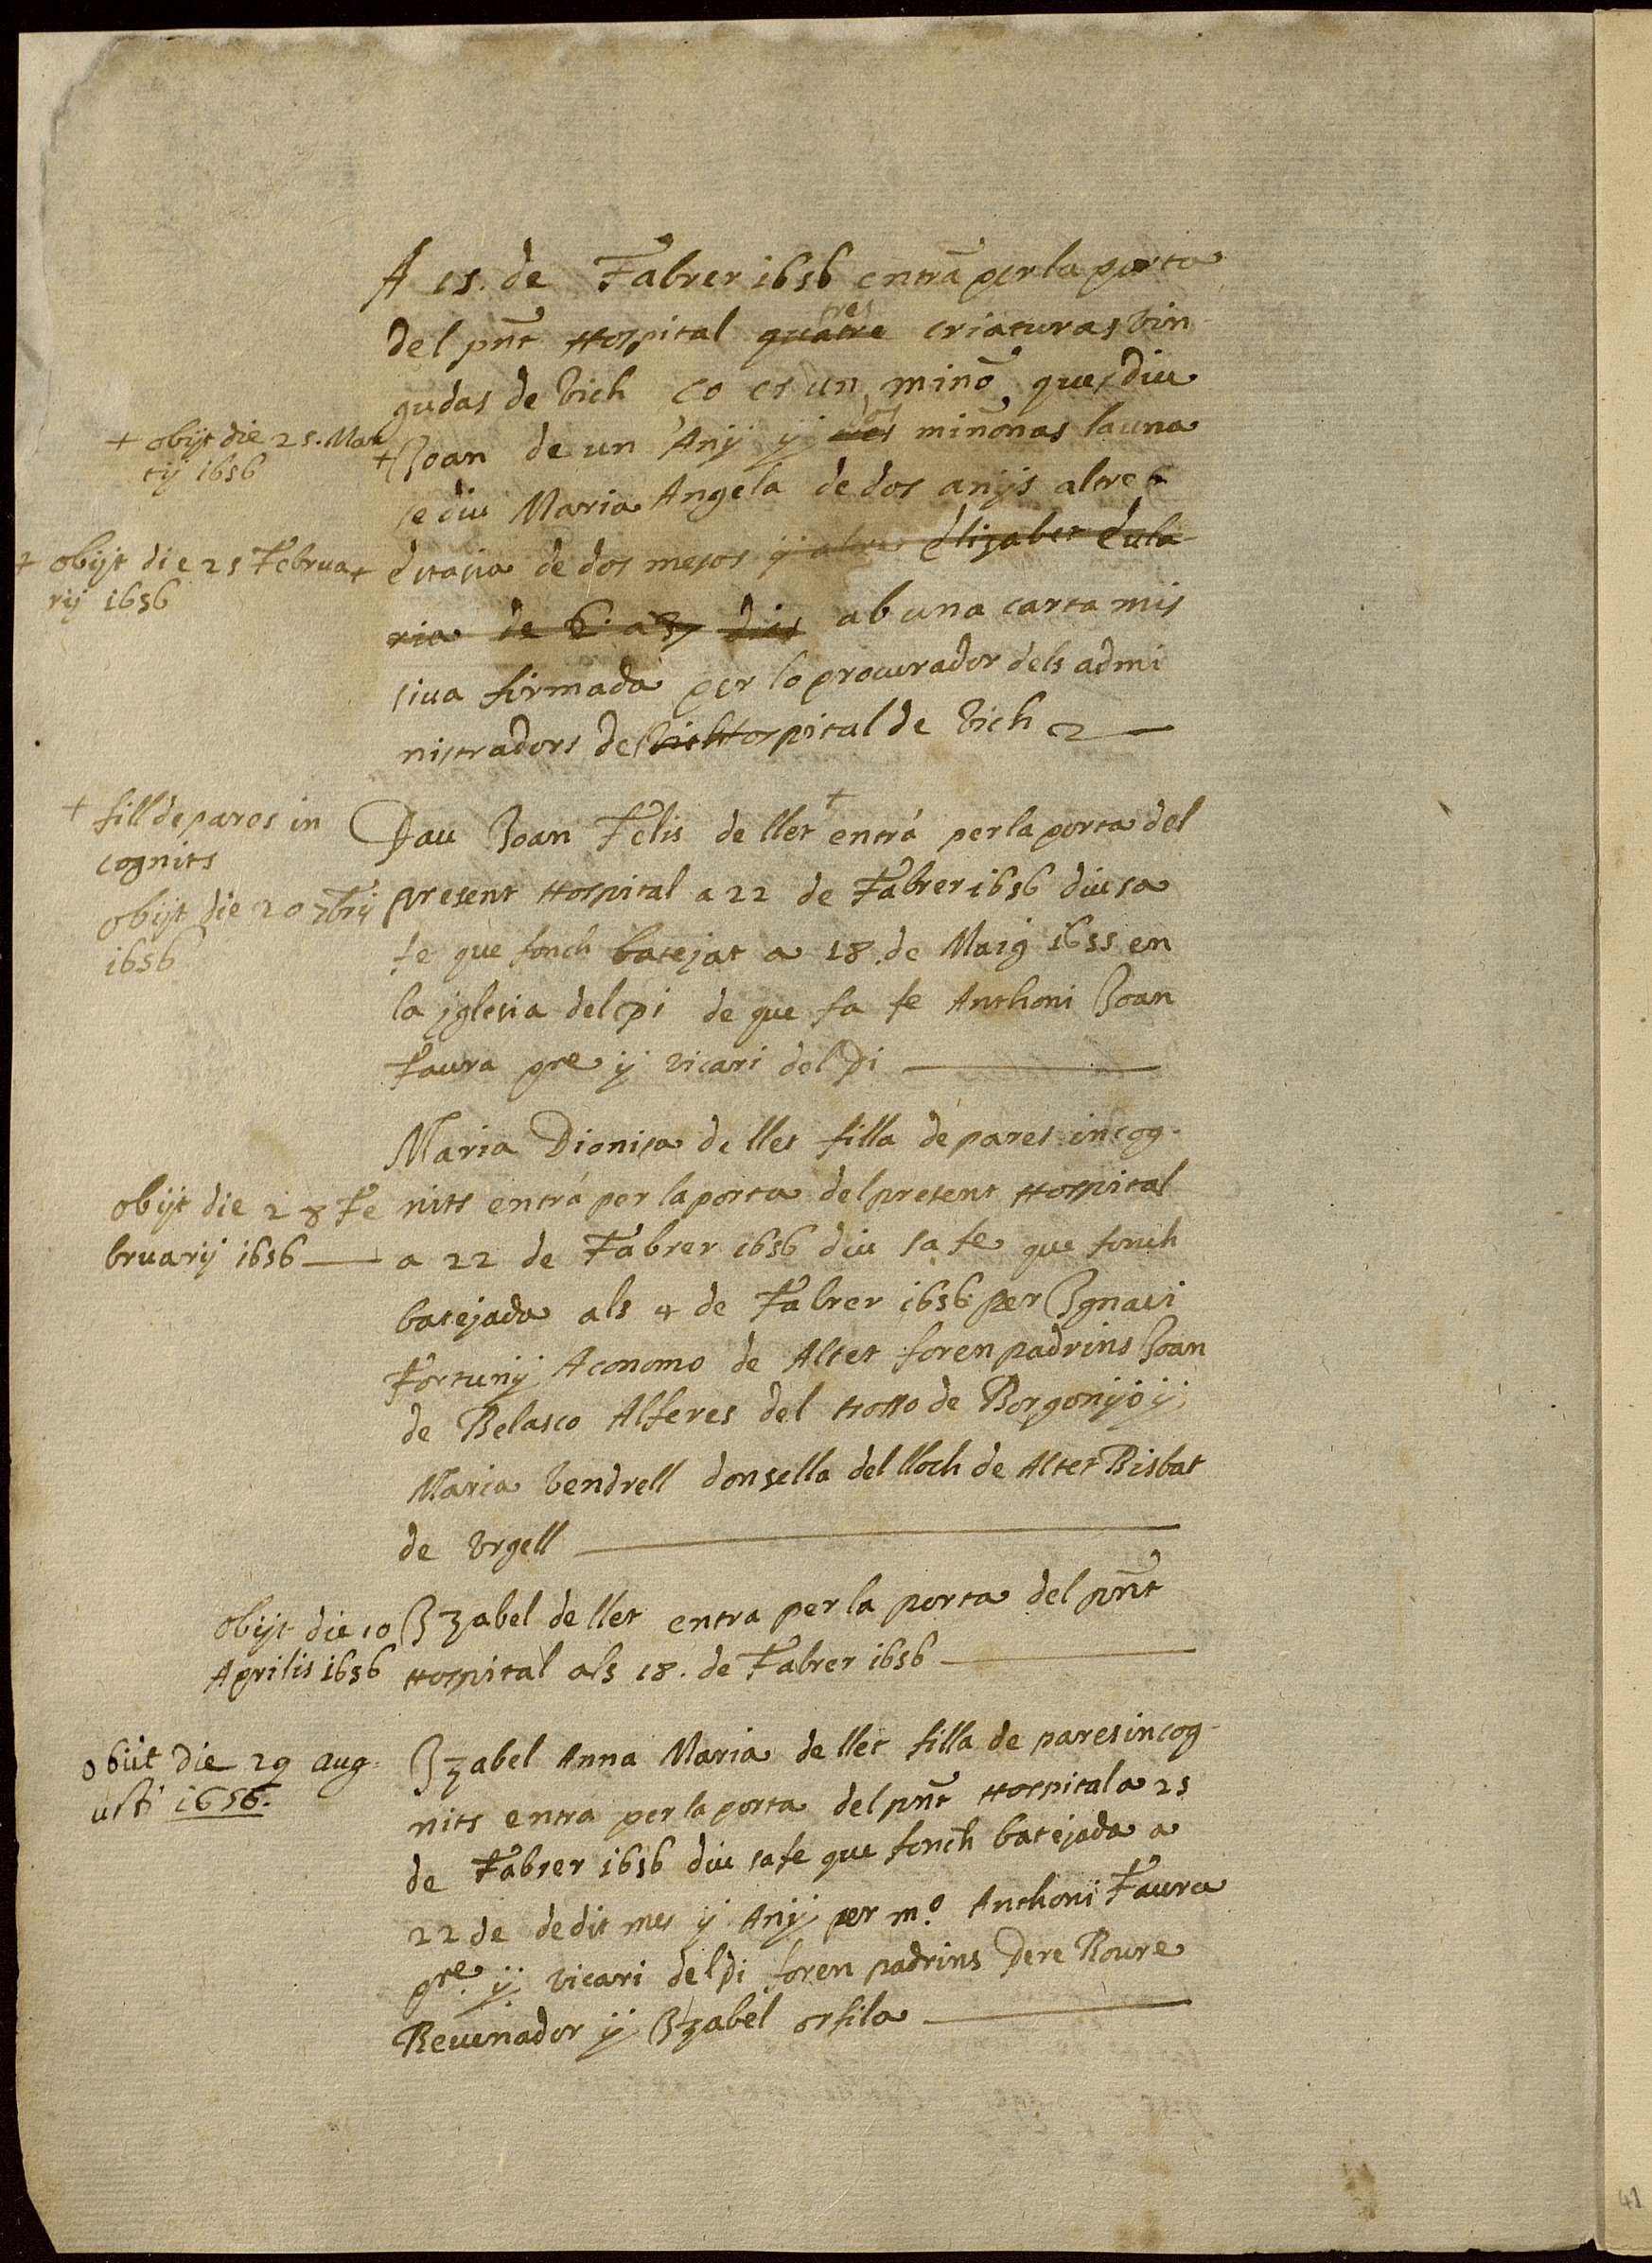 A 15. de Fabrer 1656 entrã per la porta
del pñt Hospital quatre tres criaturas vin
gudas de Vich ço es un minõ ques diu
+ obijt die 25. Mar
tij 1656
+ Joan de un Anÿ ÿ dos miñonas la una
se diu Maria Angela de dos anÿs altre
+ obijt die 25 Februa
rij 1656
+ de dos mesos ÿ altre Elizabet Eula
ria de 6. a 7 dies ab una carta mis
siva firmada per lo procurador dels admi
nistradors del Vich Hospital de Vich
+ fill de pares in
cognits
obijt die 20 7brij
1656
Pau Joan Felis de llet + entrá per la porta del
present Hospital a 22 de Fabrer 1656 diu sa
fe que fonch batejat a 18. de Maig 1655 en
la yglesia del pi de que fa fe Anthoni Joan
Faura pre ÿ vicari del Pi
Maria Dionisa de llet filla de pares incog-
obijt die 28 Fe
bruarij 1656
nits entrá per la porta del present Hospital
a 22 de Fabrer 1656 diu sa fe que fonch
batejada als 4 de Fabrer 1656 per Ignaci
Fortunÿ Aconomo de Altet foren padrins Joan
de Belasco Alferes del trosso de Borgonÿo ÿ
Maria Vendrell donsella del lloch de Altet Bisbat
de Vrgell
obijt die 10
Aprilis 1656
Izabel de llet entra per la porta del pñt
Hospital als 18. de Fabrer 1656
obiit die 29 aug-
usti 1656.
Izabel Anna Maria de llet filla de pares incog-
nits entra per la porta del pñt Hospital a 25
de Fabrer 1656 diu sa fe que fonch batejada a
22 de de dit mes ÿ Anÿ per mº Anthoni Faura
pre. ÿ vicari del Pi foren padrins Pere Roure
Revenador ÿ Izabel orfila
41